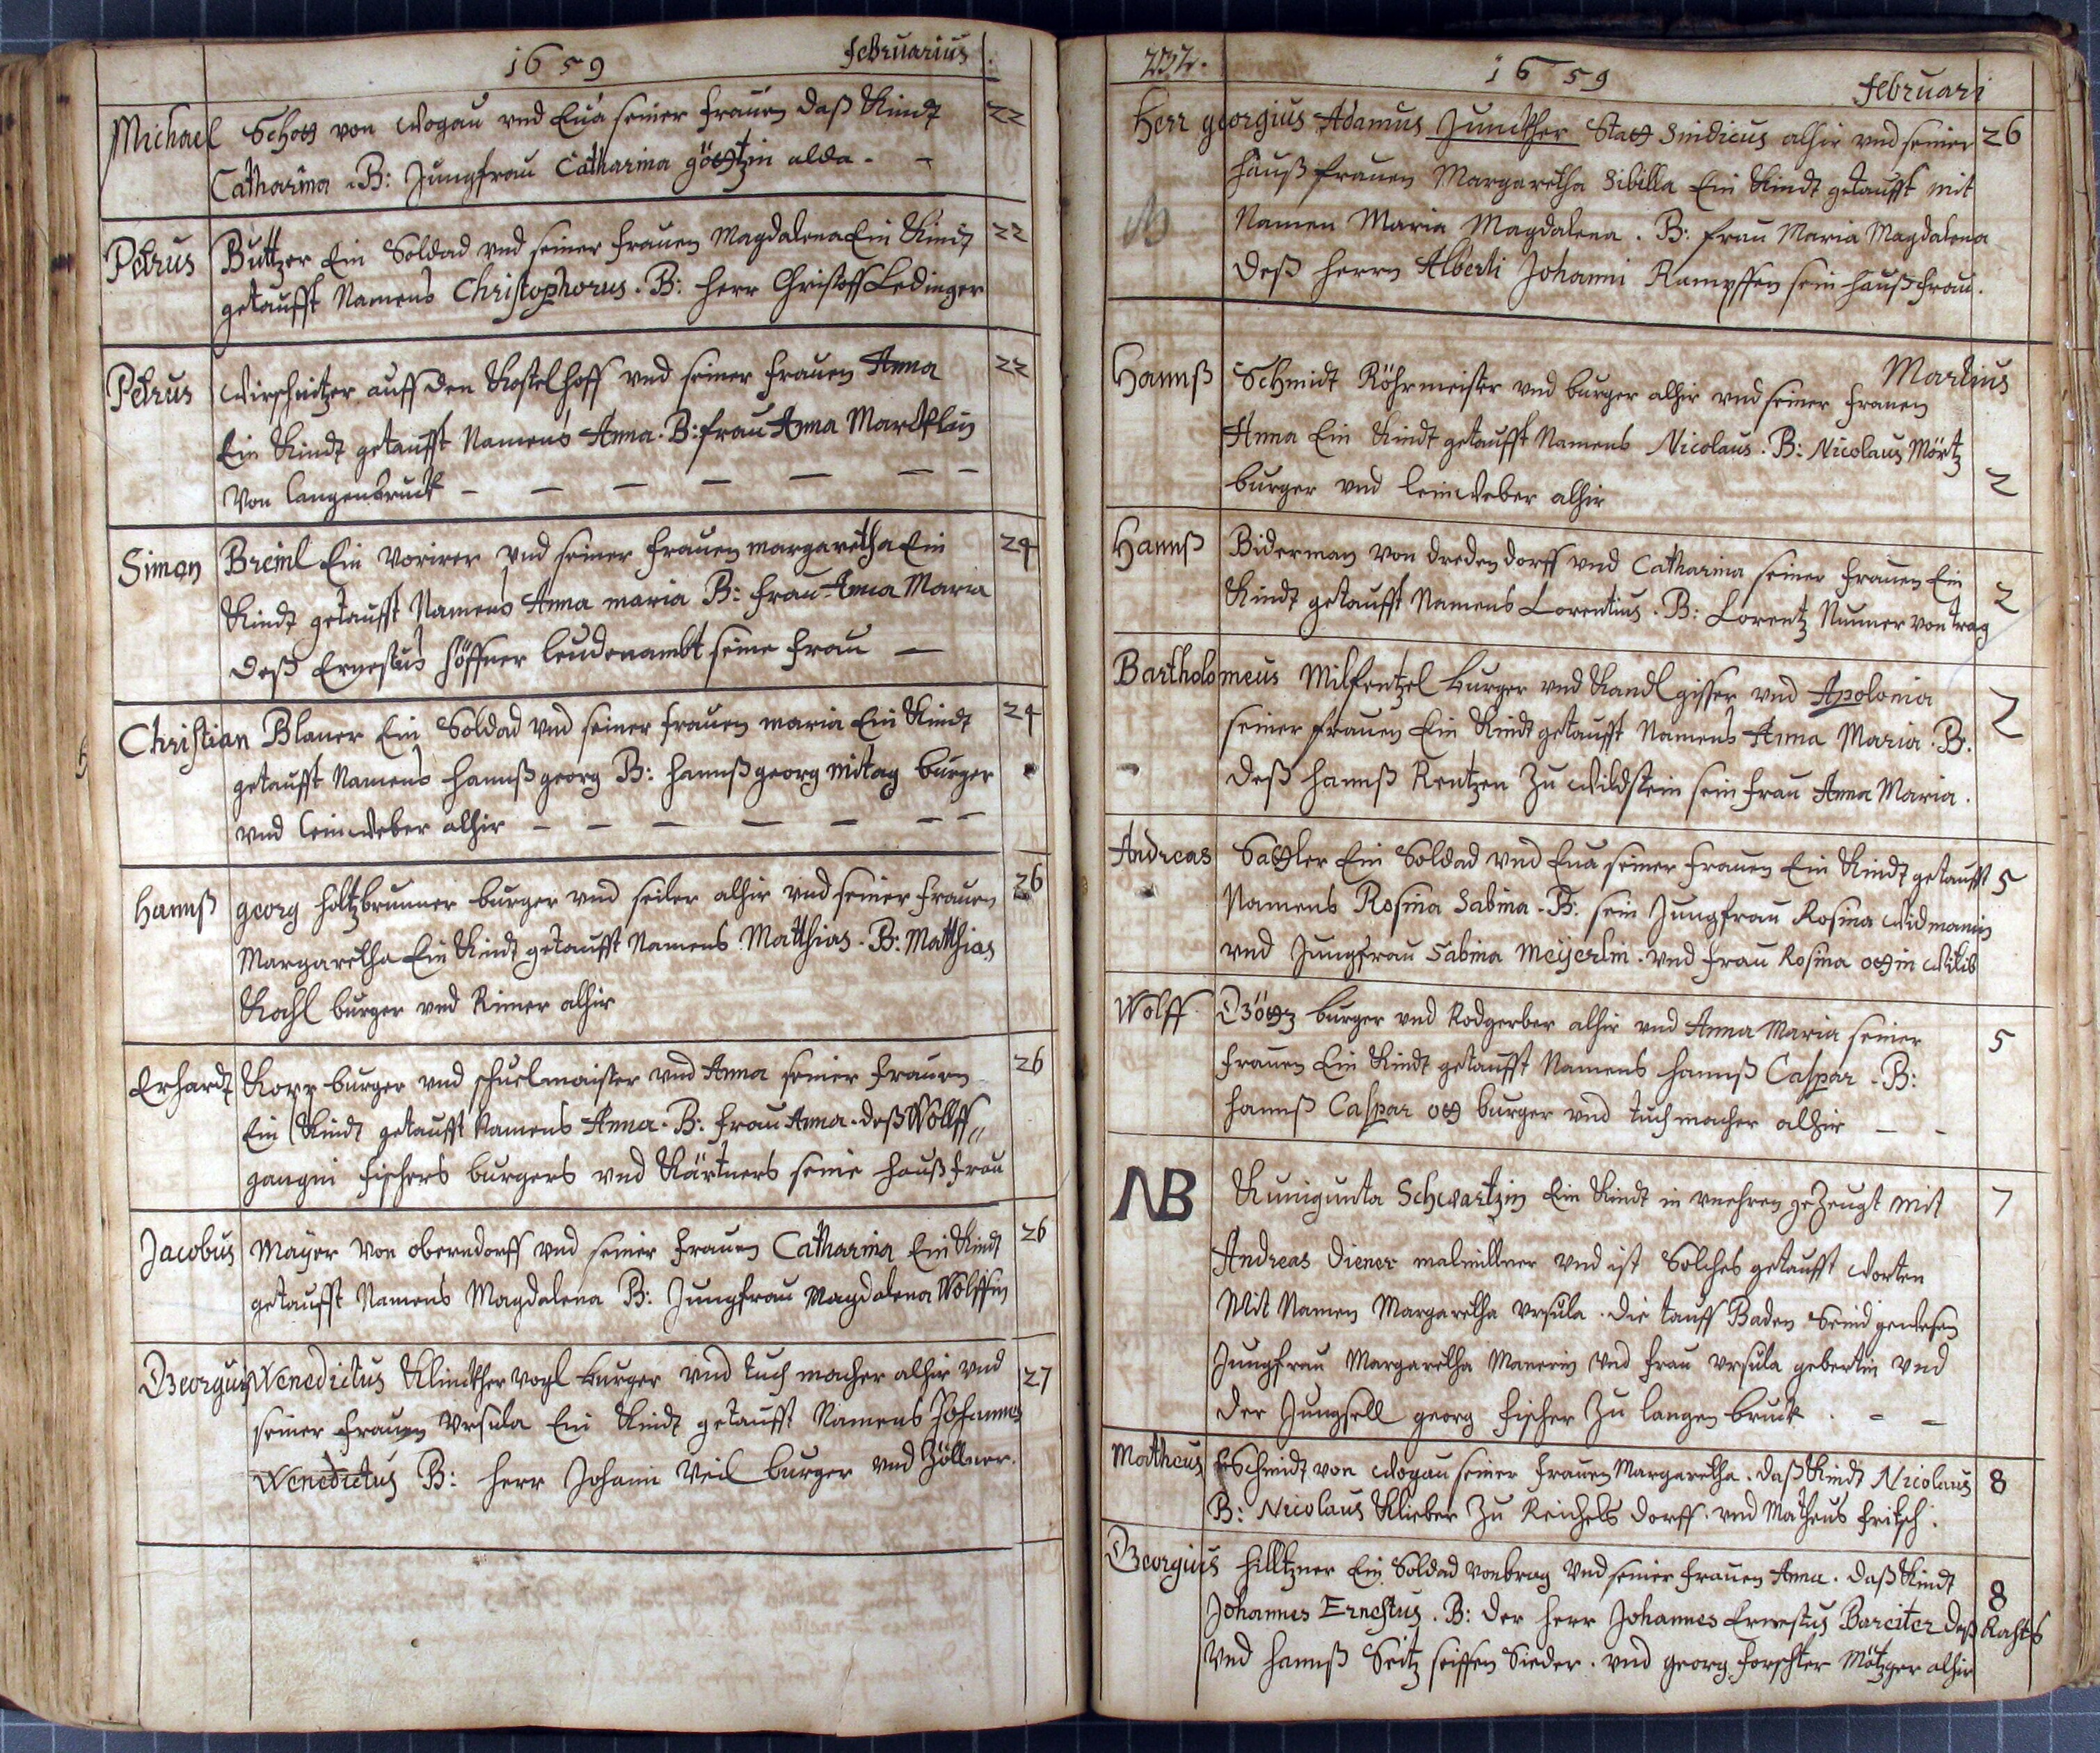 1659 februarius
Michael Schott von Wogau vnd Eua seiner frauen daß Kindt 22
Catharina . B: Jungfrau Catharina göttzin alda . -
Petrus Buttzer Ein Soldad vnd seiner frauen Magdalena Ein Kindt 22
getaufft Namens Christophorus . B: herr Christoff Ledinger
Petrus Wirschnitzer auff den Kostelhoff vnd seiner frauen Anna 22
Ein Kindt getaufft Namens Anna . B: frau Anna
Von langenbruck - - - - - - -
Simon Breinl Ein vnd seiner frauen margaretha Ein 24
Kindt getaufft Namens Anna maria B: frau Anna Maria
deß Ernestus höffner seine frau -
Christian Blaner Ein Soldad vnd seiner frauen maria Ein Kindt 24
getaufft Namens hannß georg B: hannß georg mitag burger
vnd leinweber alhir - - - - - - -
Hannß georg holtzbrunner burger vnd seiler alhir vnd seiner frauen 26
Margaretha Ein Kindt getaufft Namens Matthias . B: Matthias
Kohl burger vnd Rimer alhir
Erhardt burger vnd schuelmaister vnd Anna seiner frauen 26
Ein Kindt getaufft Namens Anna . B: frau Anna . deß Wolff„
gangni fischers burgers vnd Kärtners seine haußfrau
Jacobus Mayer Von oberndorff vnd seiner frauen Catharina Ein Kindt 26
getaufft Namens Magdalena B: Jungfrau Magdalena Wolffin
Georgius Wenedictus Klinckhervogl burger vnd tuch macher alhir vnd 27
seiner frauen Vrsula Ein Kindt getaufft Namens Johannes
Wenedictus B: herr Johann Veil burger vnd Zöllner.
232. 1659 februari
Herr georgius Adamus Junckher Statt Sindicus alhir vnd seiner 26
haußfrauen Margaretha Sibilla Ein Kindt getaufft mit
Namen Maria Magdalena . B: frau Maria Magdalena
deß herrn Alberti Johanni Rampffen sein haußfrau.
Martius
Hannß Schmidt Röhrmeister vnd burger alhir vnd seiner frauen
Anna Ein Kindt getaufft Namens Nicolaus . B: Nicolaus Mörtz
burger vnd leinweber alhir 2
Hannß Biderman von dredendorff vnd Catharina seiner frauen Ein
Kindt getaufft Namens Lorentius . B: Lorentz Nunner von trag 2
Bartholomeus Milfentzel burger vnd Kandlgisser vnd Apolonia
seiner frauen Ein Kindt getaufft Namens Anna Maria . B. 2
deß hannß Rentzen Zu Wildstein sein frau Anna Maria .
Andreas Sattler Ein Soldad vnd Eua seiner frauen Ein Kindt getaufft 5
Namens Rosina Sabina . B: sein Jungfrau Rosina Widmanin
vnd Jungfrau Sabina Meyerlin . vnd frau Rosina ottin
Wolff Göttz burger vnd Rodgerber alhir vnd Anna Maria seiner 5
frauen Ein Kindt getaufft Namens hannß Caspar . B:
hannß Caspar ott burger vnd tuchmacher alhir - -
NB Kunigunta Schwartzin Ein Kindt in vnehren geZeugt mit 7
Andreas Diener malmillner vnd ist Solches getaufft worten
Mit Namen Margaretha Vrsula . die tauff Baden Seind gewesen
Jungfrau Margaretha Manerin vnd frau Vrsula gebertin vnd
der Jungsell georg fischer Zu langen bruck . - -
Matheus Schmidt von Wogau seiner frauen Margaretha . daß Kindt Nicolaus 8
B: Nicolaus Klieber Zu Reichels dorff . vnd Matheus fritsch .
Georgius hilltzner Ein Soldad vnd seiner frauen Anna . daß Kindt 8
Johannes Ernestus . B: der herr Johannes Ernestus Bareiter deß Rahts
vnd hannß Seitz seiffen Sieder . vnd georg forschter Mötzger alhir